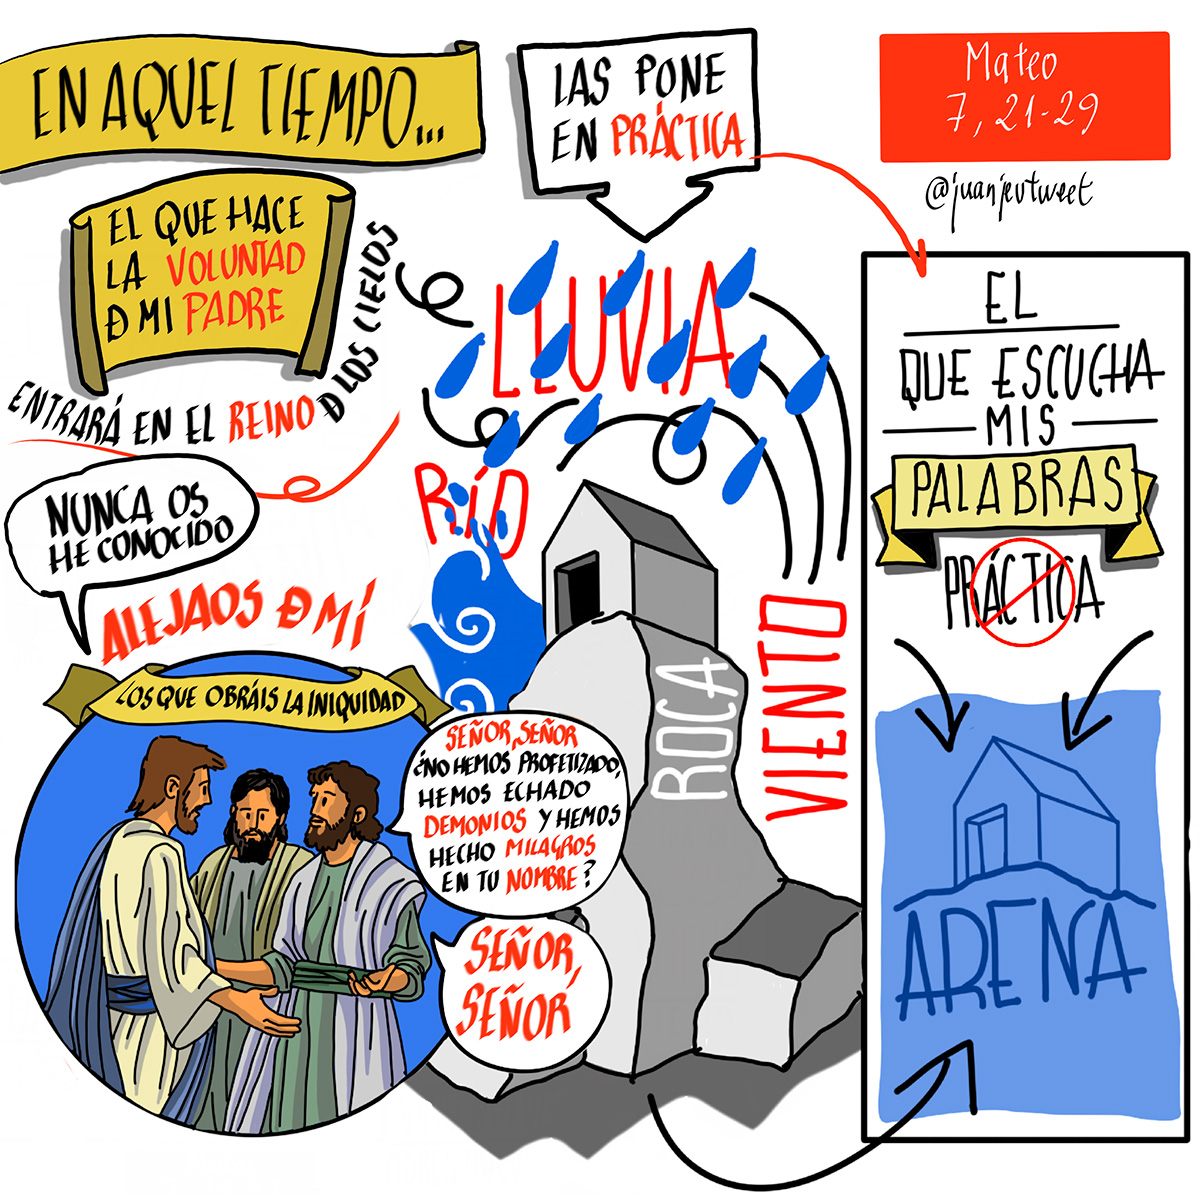 EN AQUEL TIEMPO...
LAS PONE
EN PRÁCTICA
Mateo
7, 21-29
@juanjevtweet
EL QUE HACE
LA VOLUNTAD
Đ MI PADRE
ENTRARÁ EN EL REINO Đ LOS CIELOS
NUNCA OS
HE CONOCIDO
ALEJAOS Đ MÍ
LOS QUE OBRÁIS LA INIQUIDAD
SEÑOR, SEÑOR
¿NO HEMOS PROFETIZADO,
HEMOS ECHADO
DEMONIOS Y HEMOS
HECHO MILAGROS
EN TU NOMBRE?
SEÑOR,
SEÑOR
LLUVIA
RÍO
VIENTO
ROCA
EL
QUE ESCUCHA
MIS
PALABRAS
PRÁCTICA
ARENA